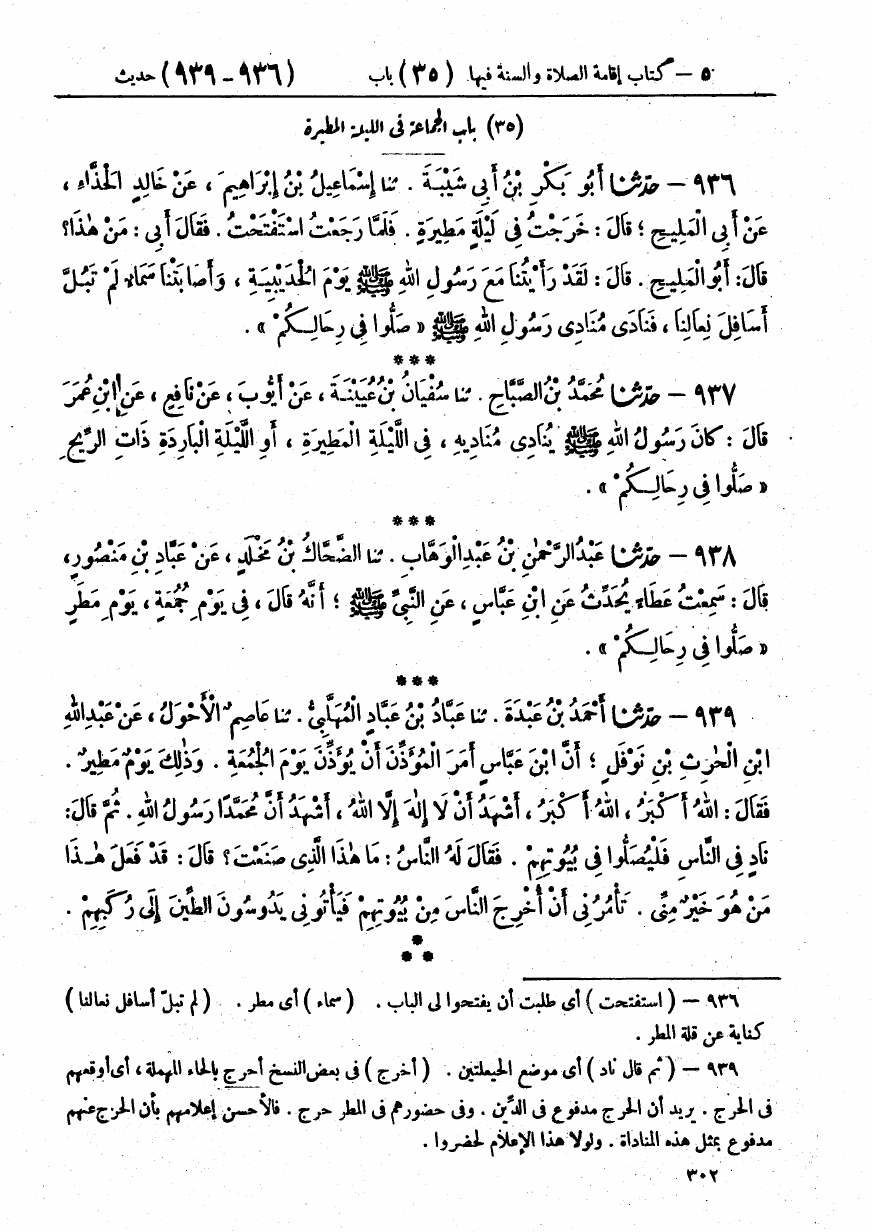 ٥ – كتاب إقامة الصلاة والسنة فيها (٣٥) باب (٩٣٦ - ٩٣٩) حديث
(٣٥) باب الجماعة فى الليلة المطيرة
٩٣٦ – حدّثنا أَبُو بَكْرِ بْنُ أَبِى شَيْبَةَ . ثنا إِسْمَاعِيلُ بْنُ إِبْرَاهِيمَ ، عَنْ خَالِدٍ الْحَذَّاءِ ،
عَنْ أَبِى الْمَلِيحِ ؛ قَالَ : خَرَجْتُ فِى لَيْلَةٍ مَطِيرَةٍ . فَلَمَّا رَجَعْتُ اسْتَفْتَحْتُ . فَقَالَ أَبِى : مَنْ هٰذَا؟
قَالَ : أَبُو الْمَلِيحِ . قَالَ : لَقَدْ رَأَيْتُنَا مَعَ رَسُولِ اللهِ ﷺ يَوْمَ الْحُدَيْبِيَةِ ، وَأَصَابَتْنَا سَمَاءٌ لَمْ تَبُلَّ
أَسَافِلَ نِعَالِنَا ، فَنَادَى مُنَادِى رَسُولِ اللهِ ﷺ « صَلُّوا فِى رِحَالِكُمْ » .
***
٩٣٧ – حدّثنا مُحَمَّدُ بْنُ الصَّبَّاحِ . ثنا سُفْيَانُ بْنُ عُيَيْنَةَ ، عَنْ أَيُّوبَ ، عَنْ نَافِعٍ ، عَنِ ابْنِ عُمَرَ
قَالَ : كَانَ رَسُولُ اللهِ ﷺ يُنَادِى مُنَادِيهِ ، فِى اللَّيْلَةِ الْمَطِيرَةِ ، أَوِ اللَّيْلَةِ الْبَارِدَةِ ذَاتِ الرِّيحِ
« صَلُّوا فِى رِحَالِكُمْ » .
***
٩٣٨ – حدّثنا عَبْدُ الرَّحْمٰنِ بْنُ عَبْدِ الْوَهَّابِ . ثنا الضَّحَّاكُ بْنُ مَخْلَدٍ ، عَنْ عَبَّادِ بْنِ مَنْصُورٍ ،
قَالَ : سَمِعْتُ عَطَاءً يُحَدِّثُ عَنِ ابْنِ عَبَّاسٍ ، عَنِ النَّبِىِّ ﷺ ؛ أَنَّهُ قَالَ ، فِى يَوْمِ جُمُعَةٍ ، يَوْمِ مَطَرٍ
« صَلُّوا فِى رِحَالِكُمْ » .
***
٩٣٩ – حدّثنا أَحْمَدُ بْنُ عَبْدَةَ . ثنا عَبَّادُ بْنُ عَبَّادٍ الْمُهَلَّبِىُّ . ثنا عَاصِمٌ الْأَحْوَلُ ، عَنْ عَبْدِ اللهِ
ابْنِ الْحٰرِثِ بْنِ نَوْفَلٍ ؛ أَنَّ ابْنَ عَبَّاسٍ أَمَرَ الْمُؤَذِّنَ أَنْ يُؤَذِّنَ يَوْمَ الْجُمُعَةِ . وَذٰلِكَ يَوْمٌ مَطِيرٌ .
فَقَالَ : اللهُ أَكْبَرُ ، اللهُ أَكْبَرُ ، أَشْهَدُ أَنْ لَا إِلٰهَ إِلَّا اللهُ ، أَشْهَدُ أَنَّ مُحَمَّدًا رَسُولُ اللهِ . ثُمَّ قَالَ :
نَادِ فِى النَّاسِ فَلْيُصَلُّوا فِى بُيُوتِهِمْ . فَقَالَ لَهُ النَّاسُ : مَا هٰذَا الَّذِى صَنَعْتَ؟ قَالَ : قَدْ فَعَلَ هٰذَا
مَنْ هُوَ خَيْرٌ مِنِّى . تَأْمُرُنِى أَنْ أُخْرِجَ النَّاسَ مِنْ بُيُوتِهِمْ فَيَأْتُونِى يَدُوسُونَ الطِّينَ إِلَى رُكَبِهِمْ .
***
٩٣٦ – ( استفتحت ) أى طلبت أن يفتحوا لى الباب . ( سماء ) أى مطر . ( لم تبلّ أسافل نعالنا )
كناية عن قلة المطر .
٩٣٩ – ( ثم قال ناد ) أى موضع الحيعلتين . ( أخرج ) فى بعض النسخ أحرج بالحاء المهملة ، أى أوقعهم
فى الحرج . يريد أن الحرج مدفوع فى الدِّين . وفى حضورهم فى المطر حرج . فالأحسن إعلامهم بأن الحرج عنهم
مدفوع بمثل هذه المناداة . ولولا هذا الإعلام لحضروا .
٣٠٢